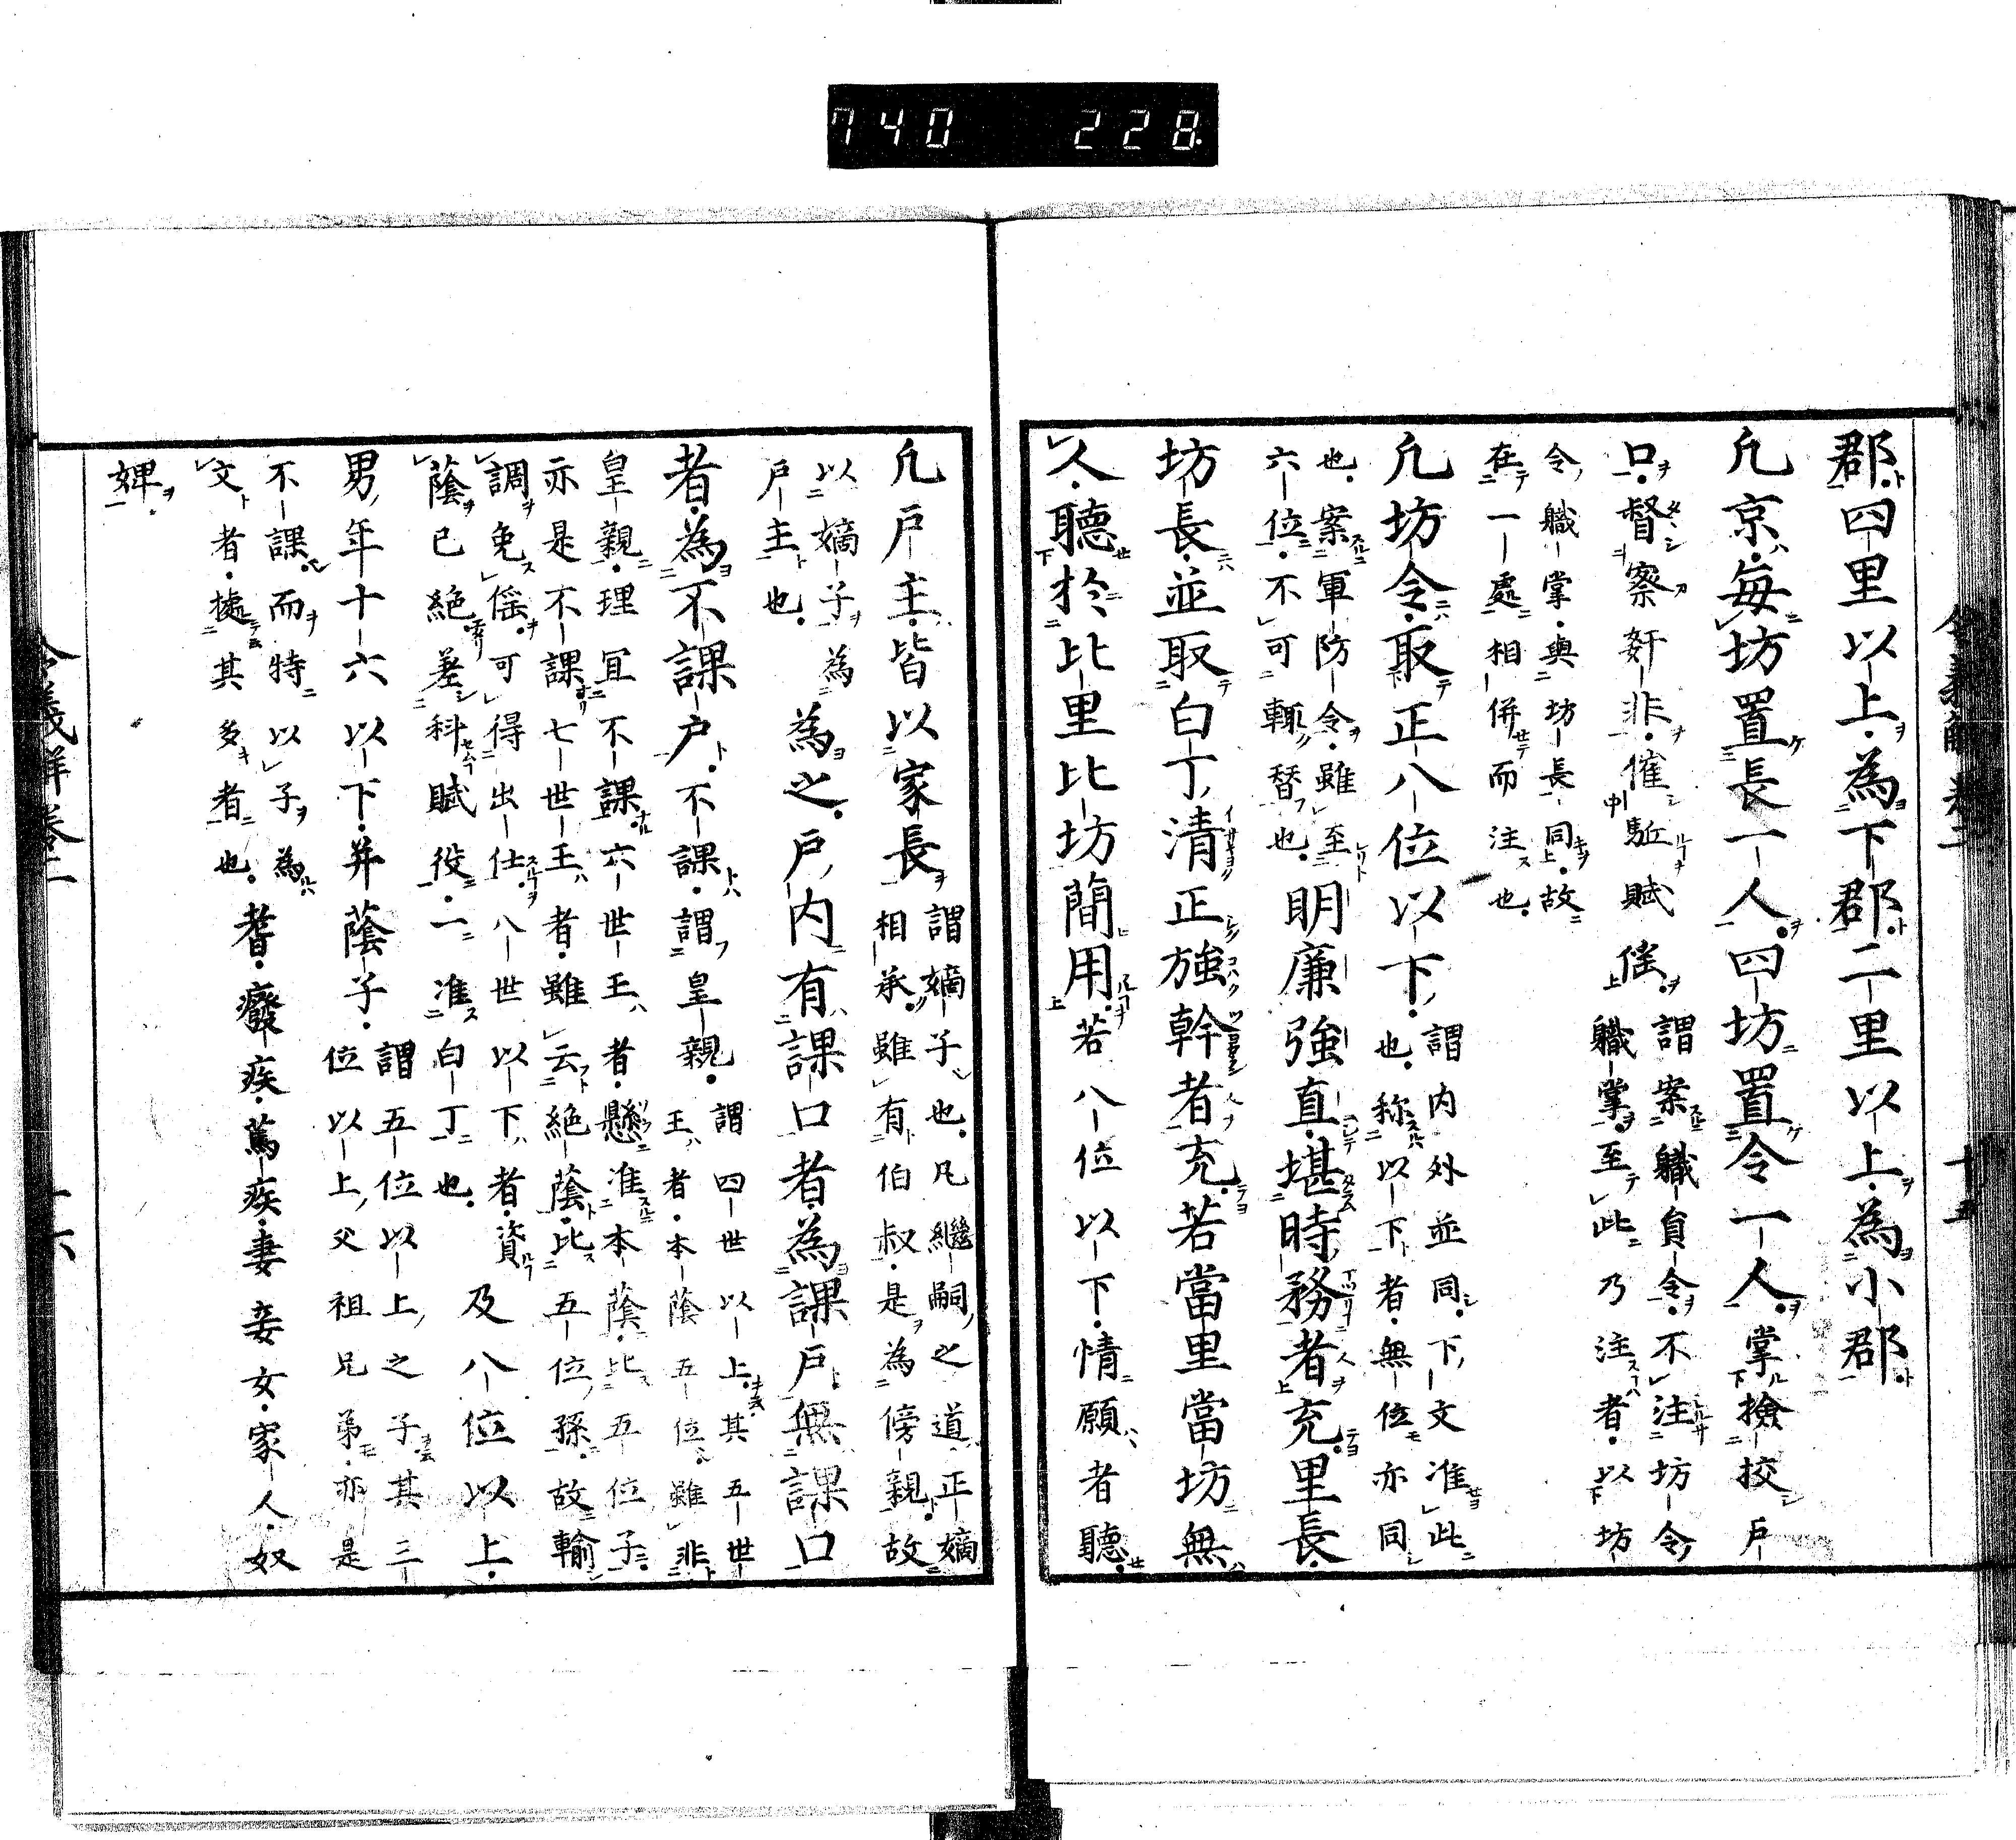 740 228
郡四里以上為下郡二里以上為小郡
凡京毎坊置長一人四坊置令一人掌撿挍戸
口督察奸非催駈賦徭謂案職員令不注坊令
職掌至此乃注者以坊
令職掌與坊長同故
在一處相併而注也
凡坊令取正八位以下謂内外並同下文准此
也称以下者無位亦同
也案軍防令雖至
六位不可輙替也明廉強直堪時務者充里長
坊長並取白丁清正強幹者充若當里當坊無
人聽於比里比坊簡用若八位以下情願者聽
凡戸主皆以家長謂嫡子也凡繼嗣之道正嫡
相承雖有伯叔是為傍親故
以嫡子為
戸主也為之戸内有課口者為課戸無課口
者為不課戸不課謂皇親謂四世以上其五世
王者本蔭五位雖非
皇親理宜不課六世王者懸准本蔭比五位子
亦是不課七世王者雖云絶蔭比五位孫故輸
調免徭可得出仕八世以下者資
蔭已絶差科賦役一准白丁也及八位以上
男年十六以下并蔭子謂五位以上之子其三
位以上父祖兄弟亦是
不課而特以子為
文者據其多者也耆癈疾篤疾妻妾女家人奴
婢
令義解卷二
十五
十六